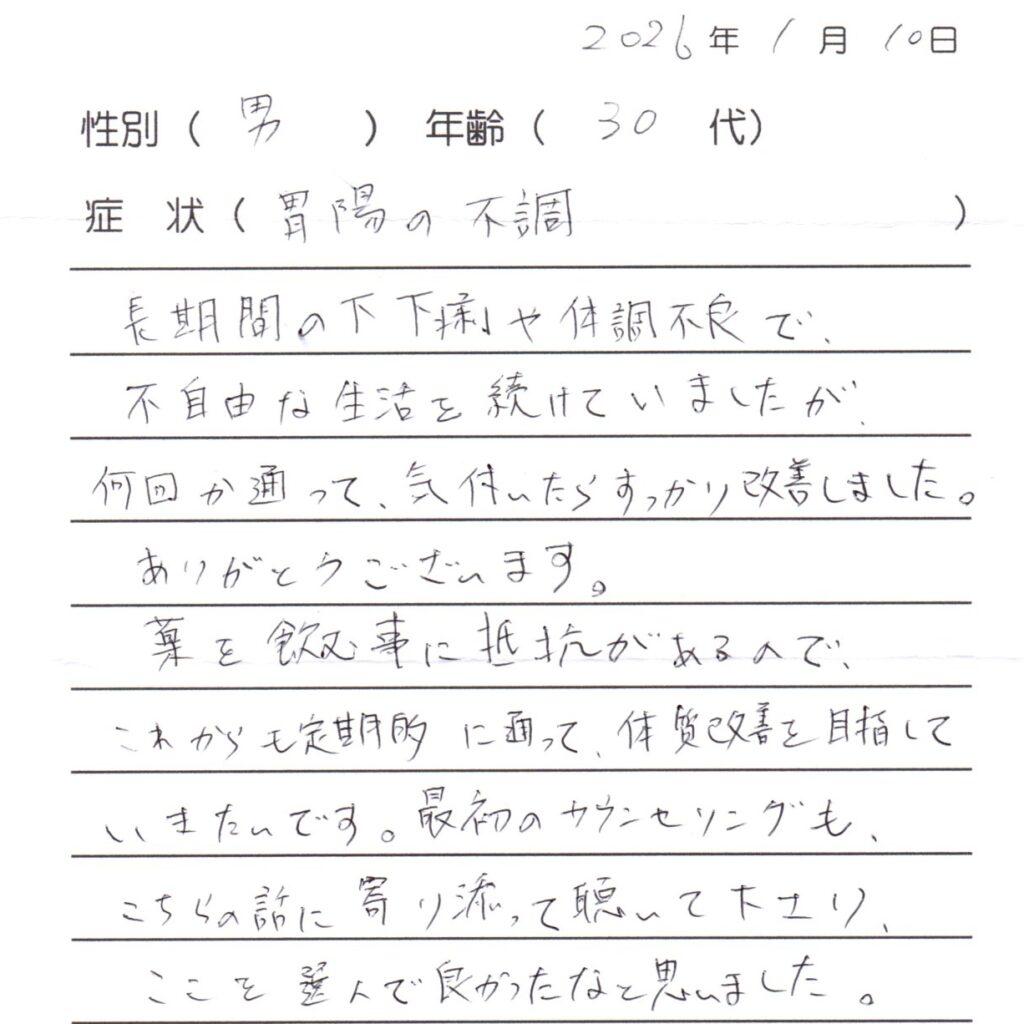 2026年1月10日
性別(男)年齢(30代)
症状(胃陽の不調)
長期間の下下痢や体調不良で、
不自由な生活を続けていましたが、
何回か通って、気付いたらすっかり改善しました。
ありがとうございます。
薬を飲む事に抵抗があるので、
これからも定期的に通って、体質改善を目指して
いきたいです。最初のカウンセリングも、
こちらの話に寄り添って聴いて下さり、
ここを選んで良かったなと思いました。